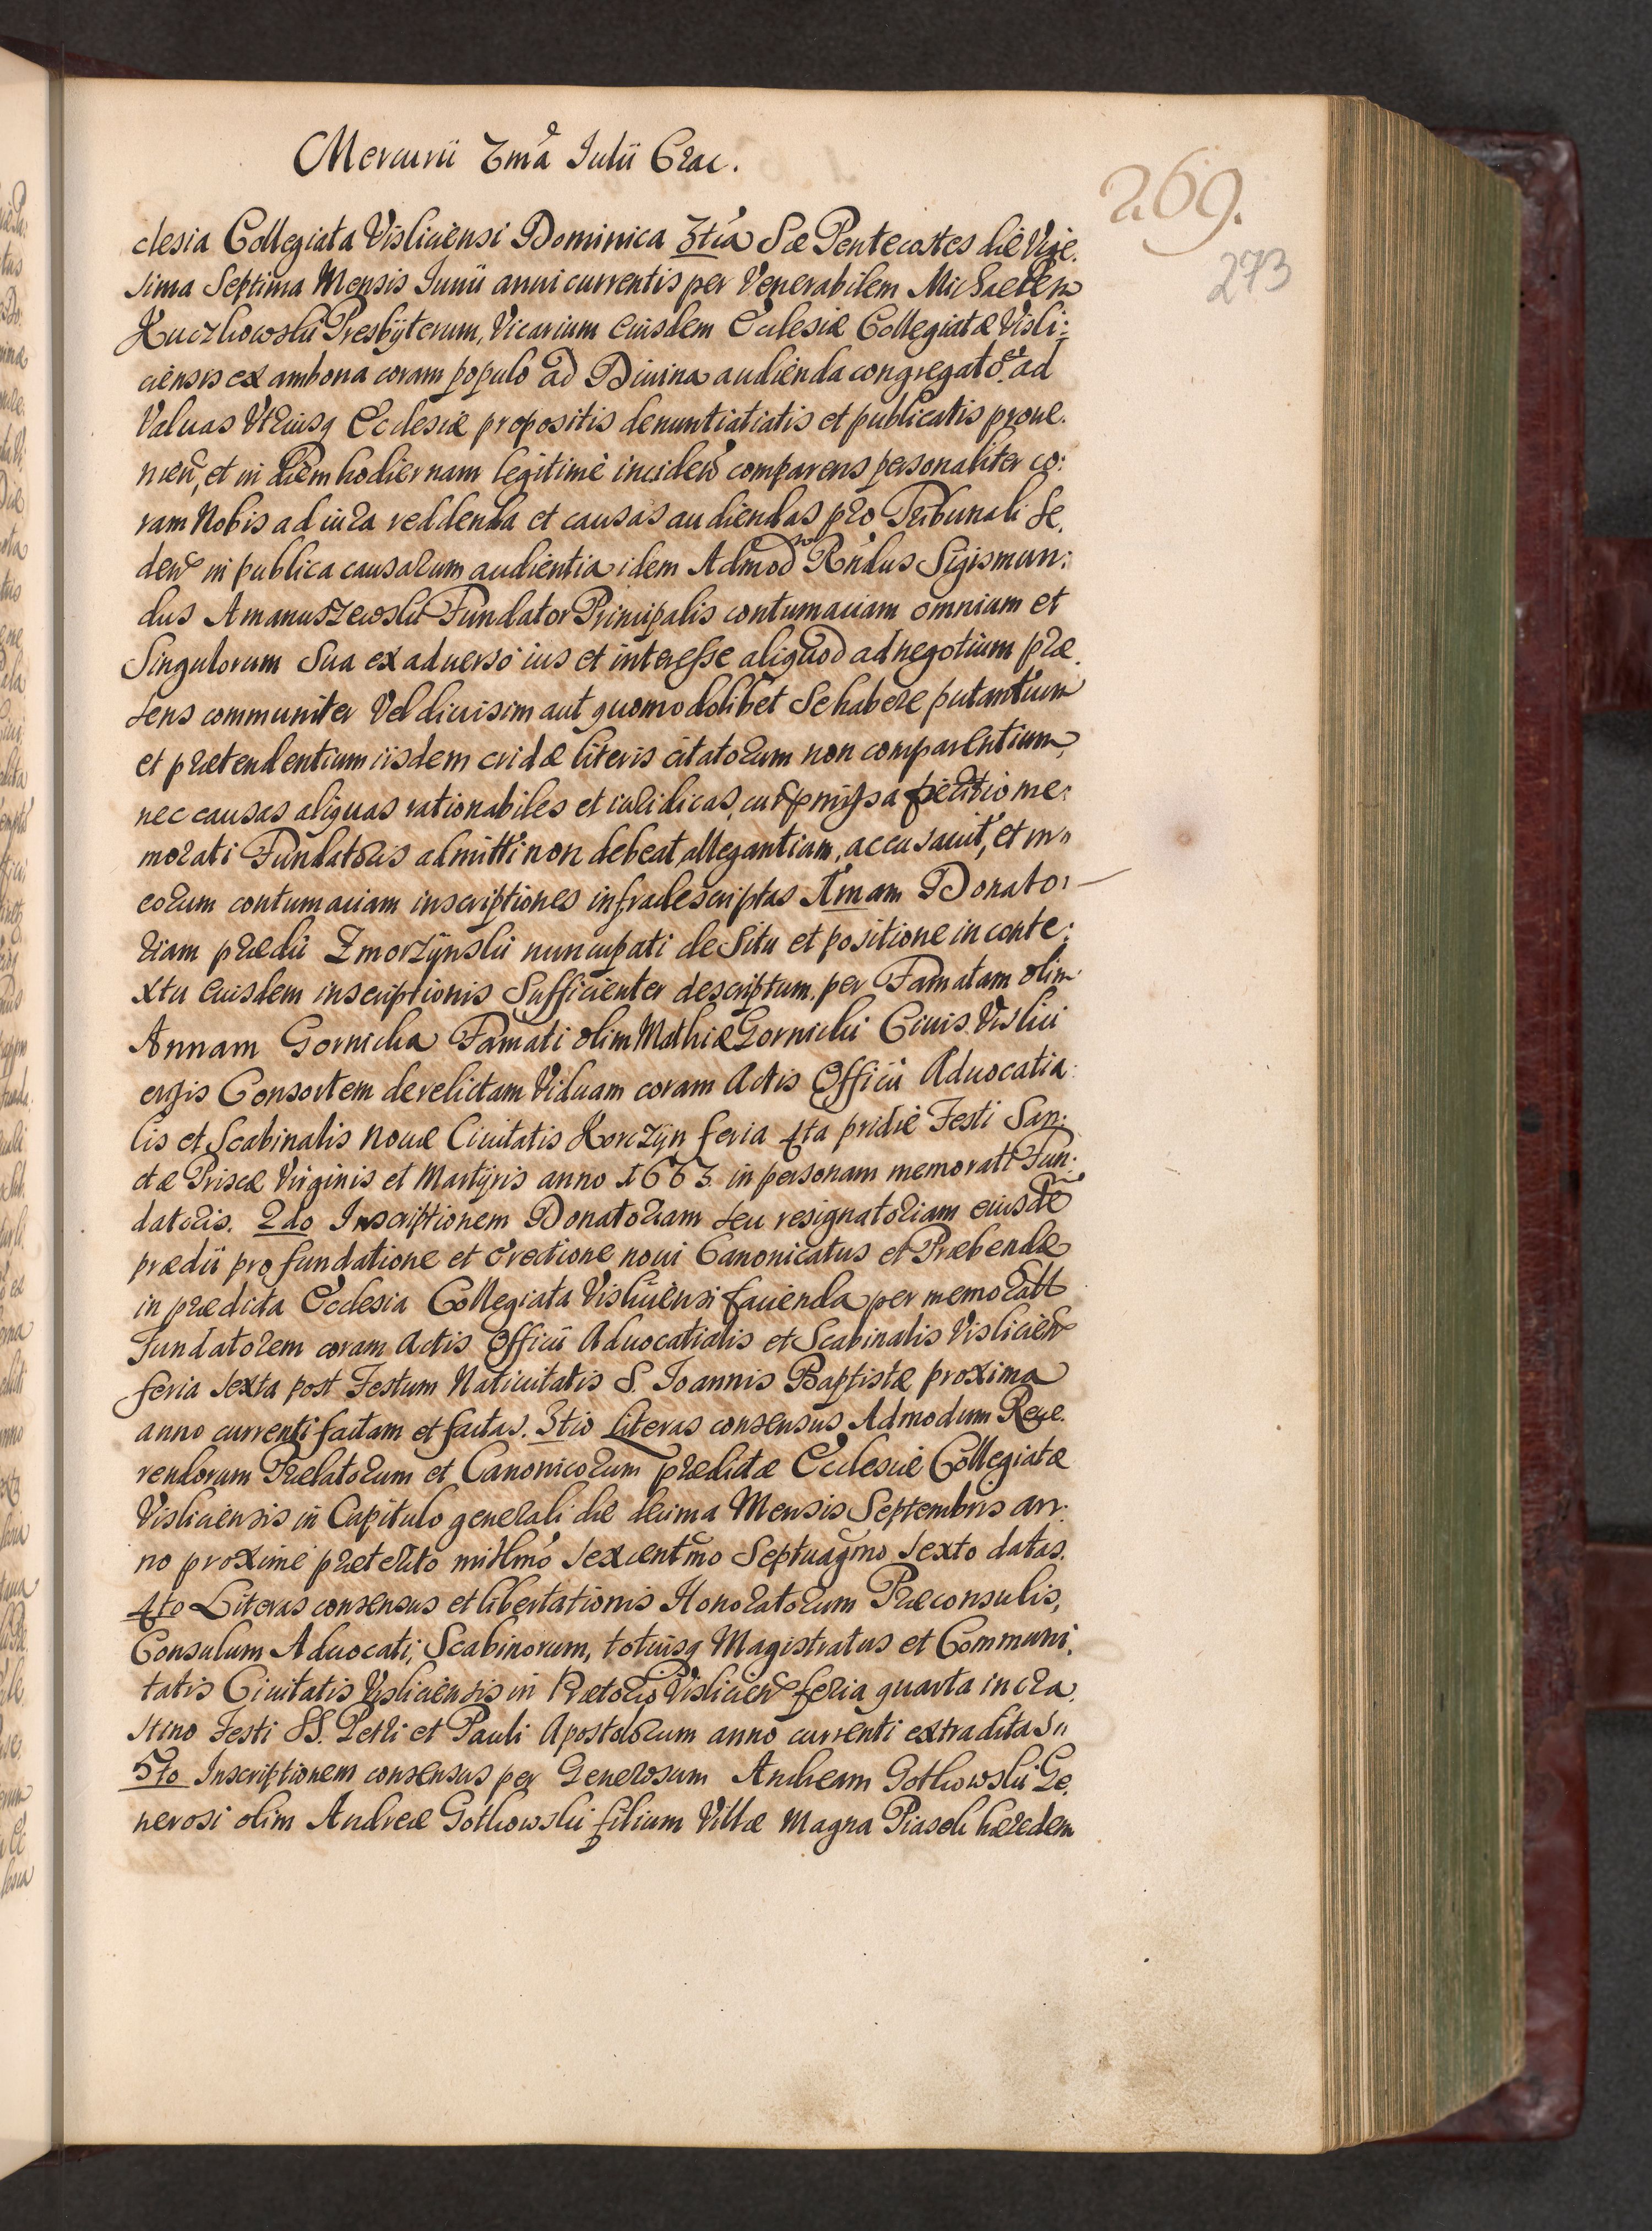 Mercurii 7mâ Julii Crac.
269.
273
clesia Collegiata Visliciensi Dominica 3tia S̃æ Pentecostes die Vige.
sima Septima Mensis Junii anni currentis per Venerabilem Michaelem
Kuczkowski Presbyterum, Vicarium Eiusdem Ecclesiæ Collegiatæ Visli:
ciensis ex ambona coram populo ad Diuina audienda congregato et ad
Valuas Vtriusq Ecclesiæ propositis denuntiatiatis et publicatis proue.
nien̄, et in diem hodiernam legitimè inciden̄ comparens personaliter co:
ram Nobis ad iura reddenda et causas audiendas pro Tribunali Se.
den̄ in publica causarum audientia idem Admod Rñdus Sigismun:
dus Amanuszewski Fundator Principalis contumaciam omnium et
Singulorum Sua ex aduerso ius et interesse aliquod ad negotium præ.
sens communiter Vel diuisim aut quomodolibet Se habere putantium
et prætendentium iisdem cridæ literis citatorum non comparentium,
nec causas aliquas rationabiles et iuridicas, cur præmissa petitio me:
morati Fundatoris admitti non debeat, allegantium, accusauit, et in
eorum contumaciam inscriptiones infradescriptas 1mam Donato:
riam prædii Zmorzynski nuncupati de Situ et positione in conte:
xtu Eiusdem inscriptionis Sufficienter descriptum, per Famatam olim
Annam Gornicka Famati olim Mathiæ Gornicki Ciuis Vislici
ensis Consortem derelictam Viduam coram Actis Officii Aduocatia:
lis et Scabinalis Nouæ Ciuitatis Korczyn feria 4ta pridiè Festi San:
ctæ Priscæ Virginis et Martyris anno 1663 in personam memorati Fun:
datoris. 2do Inscriptionem Donatoriam seu resignatoriam eiusdē
prædii pro fundatione et Erectione noui Canonicatus et Præbendæ
in prædicta Ecclesia Collegiata Visliciensi facienda per memorat̄
Fundatorem coram Actis Officii Aduocatialis et Scabinalis Vislicien̄
feria sexta post Festum Natiuitatis S. Joannis Baptistæ proxima
anno currenti factam et factas. 3tio Literas consensus Admodum Reue.
rendorum Prælatorum et Canonicorum prædictæ Ecclesiæ Collegiatæ
Visliciensis in Capitulo generali die decima Mensis Septembris an:
no proximè præterito millmo sexcentmo Septuagmo sexto datas.
4to Literas consensus et libertationis Honoratorum Præconsulis,
Consulum Aduocati, Scabinorum, totiusq Magistratus et Communi.
tatis Ciuitatis Visliciensis in Prætorio Vislicien̄ feria quarta in cra.
stino Festi SS. Petri et Pauli Apostolorum anno currenti extraditas.
5to Inscriptionem consensus per Generosum Andream Gotkowski Ge.
nerosi olim Andreæ Gotkowski filium Villæ Magna Piasek hæredem